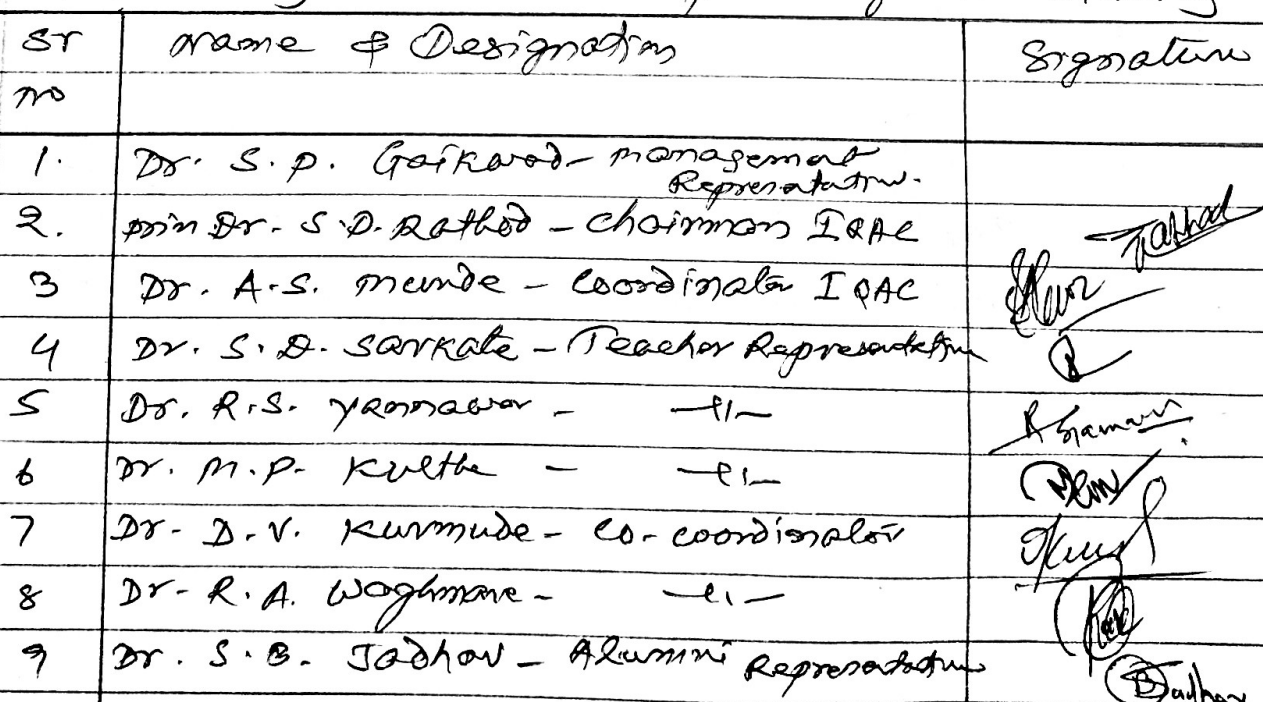 Sr Name & Designation Signature
no
1. Dr. S. P. Gaikwad - Management
Representative.
2. Prin Dr. S. D. Rathod - Chairman IQAC Rathod
3 Dr. A. S. Munde - Coordinator IQAC
4 Dr. S. D. Sarkate - Teacher Representative
5 Dr. R. S. Yannawar - -〃-
6 Dr. M. P. Kulthe - -〃-
7 Dr. D. V. Kurmude - Co-coordinator
8 Dr. R. A. Waghmare - -〃-
9 Dr. S. B. Jadhav - Alumni Representative Jadhav